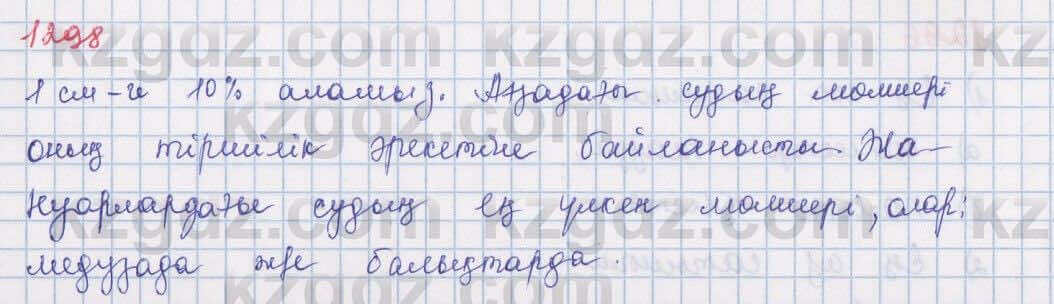 1298
1 см-ге 10% аламыз. Ағзадағы судың мөлшері
оның тіршілік әрекетіне байланысты. Жа-
нуарлардағы судың ең үлкен мөлшері, олар:
медузада және балықтарда.
kzgdz.com